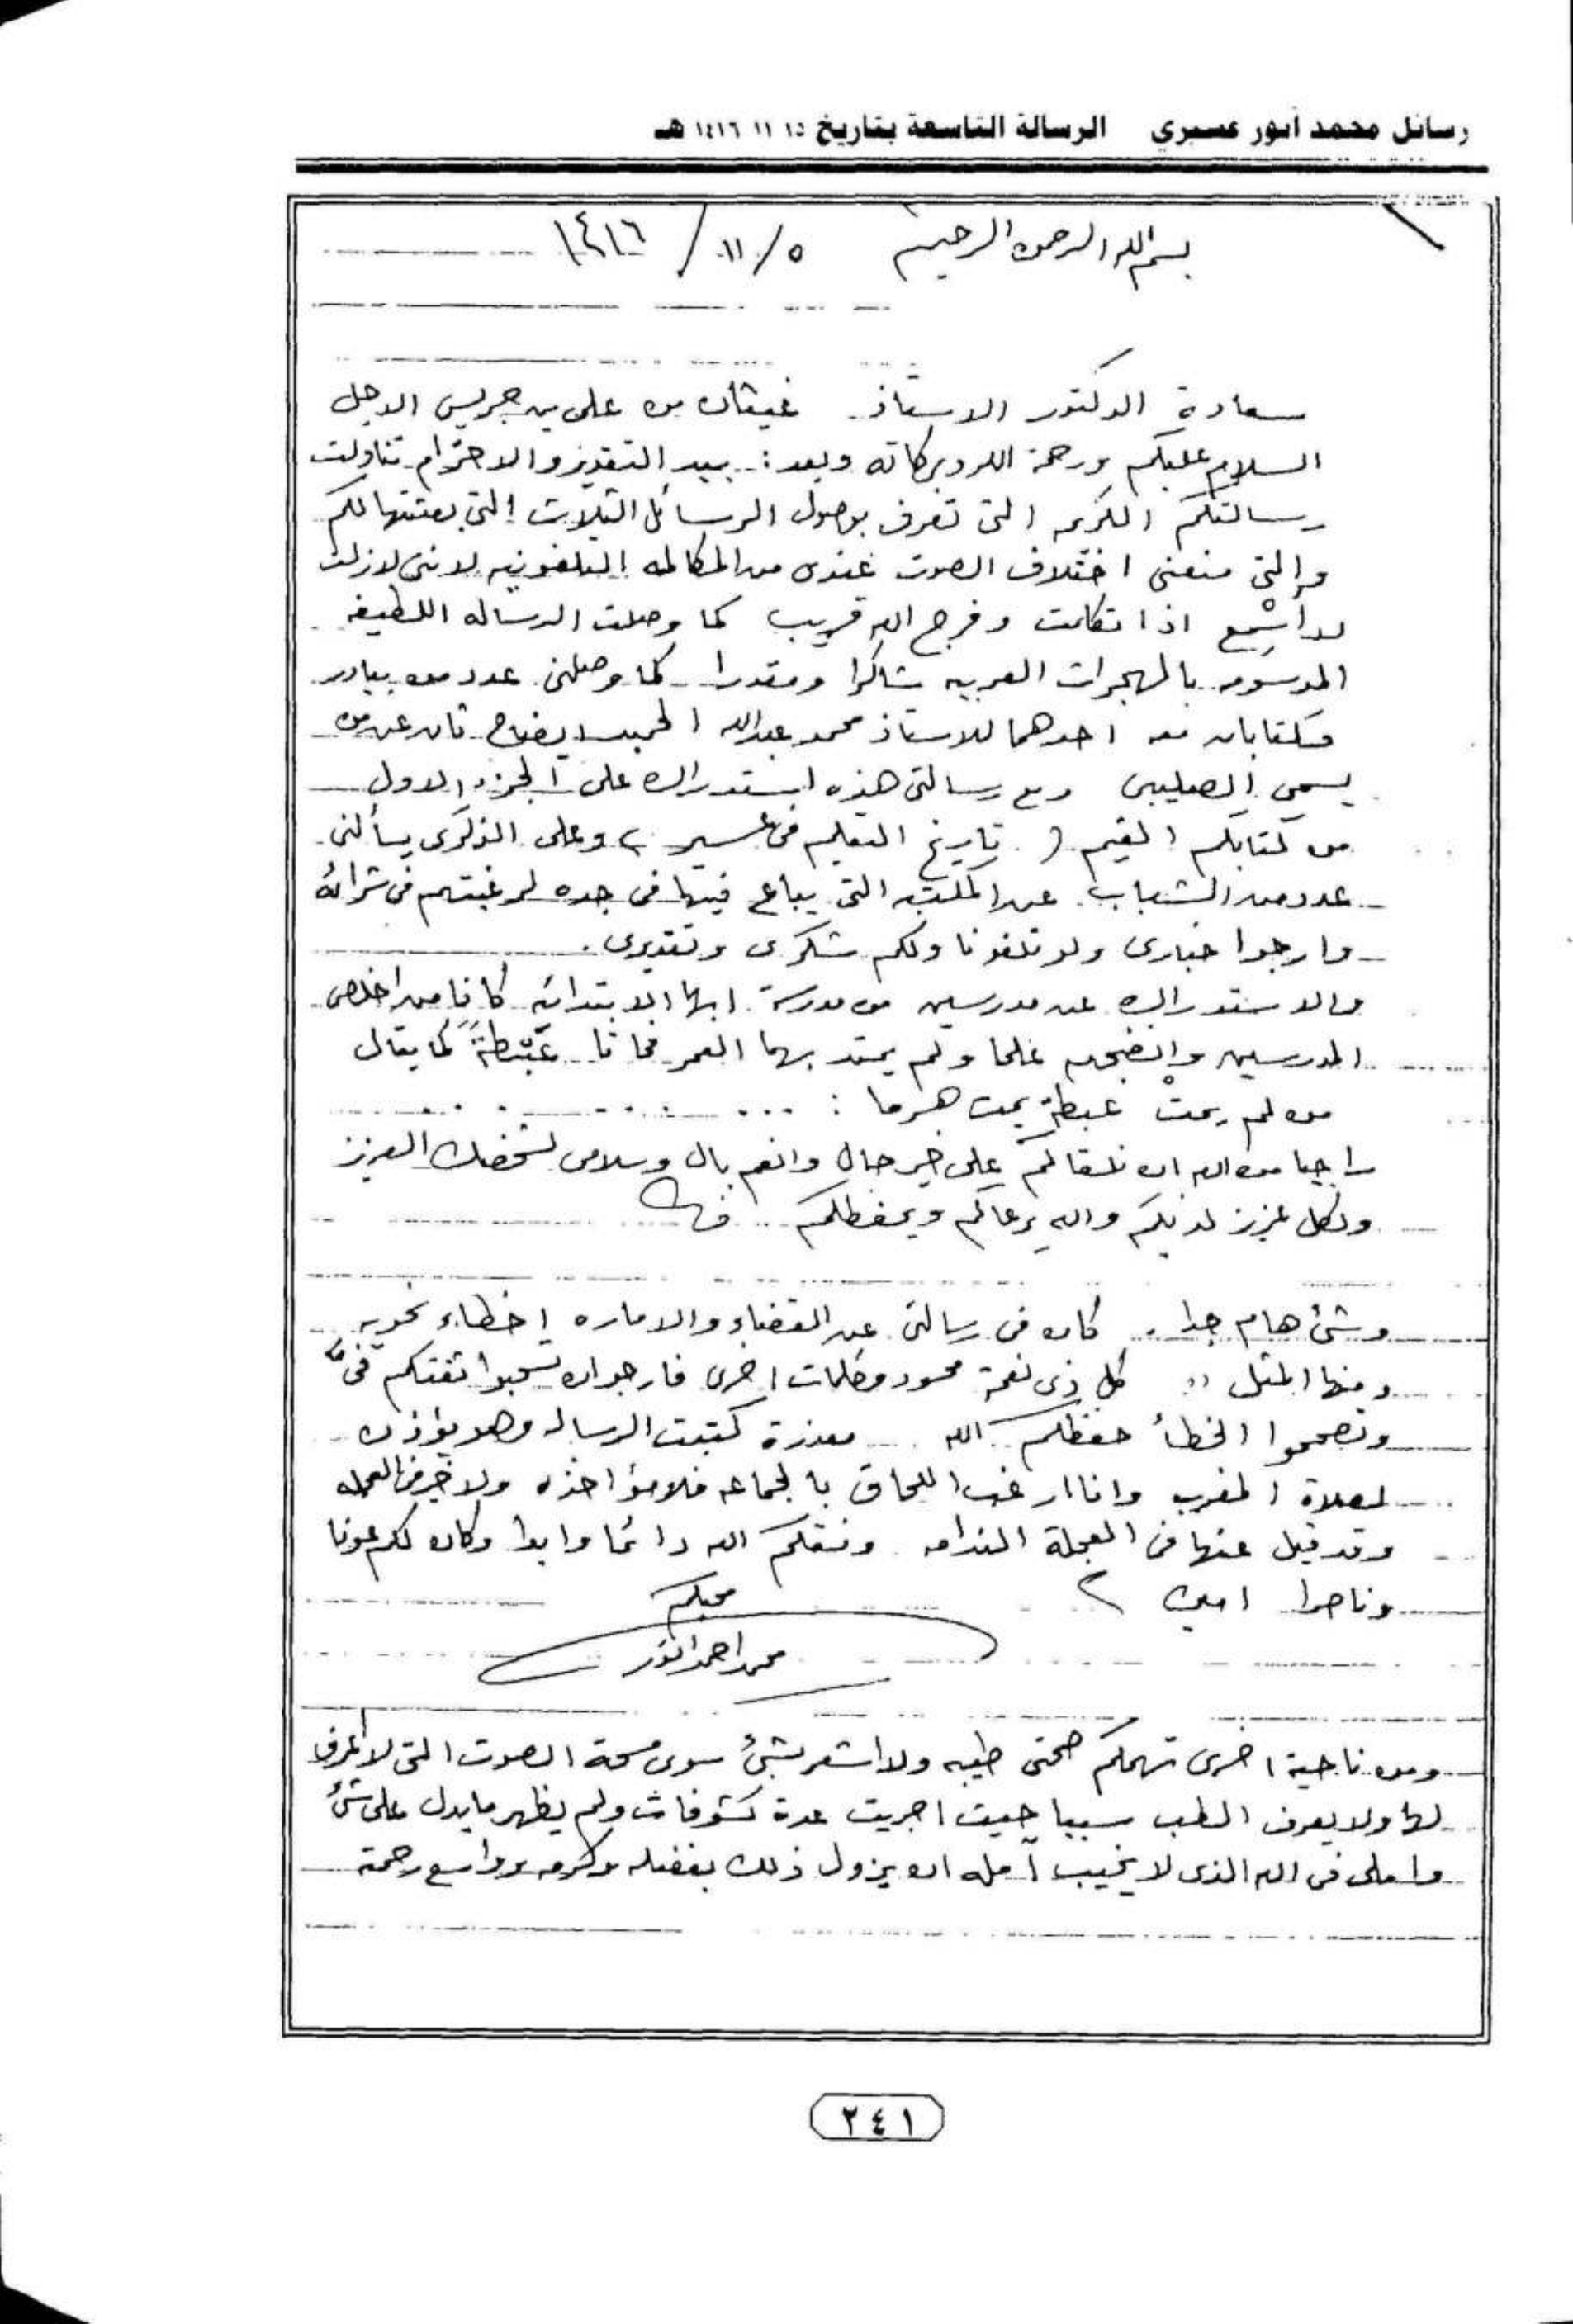 رسائل محمد أنور عسيري الرسالة التاسعة بتاريخ ١٥ ١١ ١٤١٦ هـ
١
بسم الله الرحمن الرحيم ٥/ ١١/ ١٤١٦
سعادة الدكتور الاستاذ غيثان بن على بن جريس الاجل
السلام عليكم ورحمة الله وبركاته وبعد: بيد التقدير والاحترام تناولت
رسالتكم الكريمه التى تعرف بوصول الرسائل الثلاث التى بعثتها لكم
والتى منعنى اختلاف الصوت عندى من المكالمه التلفونيه لاننى لازلت
لا اسمع اذا تكلمت وفرج الله قريب كما وصلت الرساله اللطيفه
الموسومه بالهجرات العربيه شاكرا ومقدرا كما وصلنى عدد من بيادر
وكتابان معه احدهما للاستاذ محمد عبدالله الحميد ايضاح ثان عن من
يسمى الصليبى ومع رسالتى هذه استدراك على الجزء الاول
من كتابكم القيم ( تاريخ التعليم فى عسير ) وعلى الذكرى يسألنى
عدد من الشباب عن المكتبه التى يباع فيها فى جده لرغبتهم فى شرائه
وارجوا خبارى ولو تلفونا ولكم شكرى وتقديرى.
والاستدراك عن مدرسين من مدرسة ابها الابتدائيه كانا من اخلص
المدرسين وانضجهم علما ولم يمتد بهما العمر فماتا عَبْطةً كما يقال
من لم يمتْ عبطة يمت هرما : ...
راجيا من الله ان نلقاكم على خير حال وانعم بال وسلامى لشخصك العزيز
ولكل عزيز لديكم والله يرعاكم ويحفظكم
وشئ هام جدا. كان فى رسالتى عن القضاء والاماره اخطاء نحويه
ومنها المثل " كل ذى نعمة محسود وكلمات اخرى فارجو ان تسحبوا ثقتكم فىّ
وتصححوا الخطأ حفظكم الله معذرة كتبت الرساله وهو يؤذن
لصلاة المغرب وانا ارغب اللحاق بالجماعه فلا مؤاخذه ولا خير فى العجله
وقد قيل عنها فى العجلة الندامه وفقكم الله دائما وابدا وكان لكم عونا
وناصرا امين
محبكم
محمد احمد انور
ومن ناحية اخرى تهمكم صحتى طيبه ولا اشعر بشئ سوى مسحة الصوت التى لا اعرف
لها ولا يعرف الطب سببا حيث اجريت عدة كشوفات ولم يظهر ما يدل على شئ
واملى فى الله الذى لا يخيب آمله ان يزول ذلك بفضله وكرمه وواسع رحمته
٢٤١